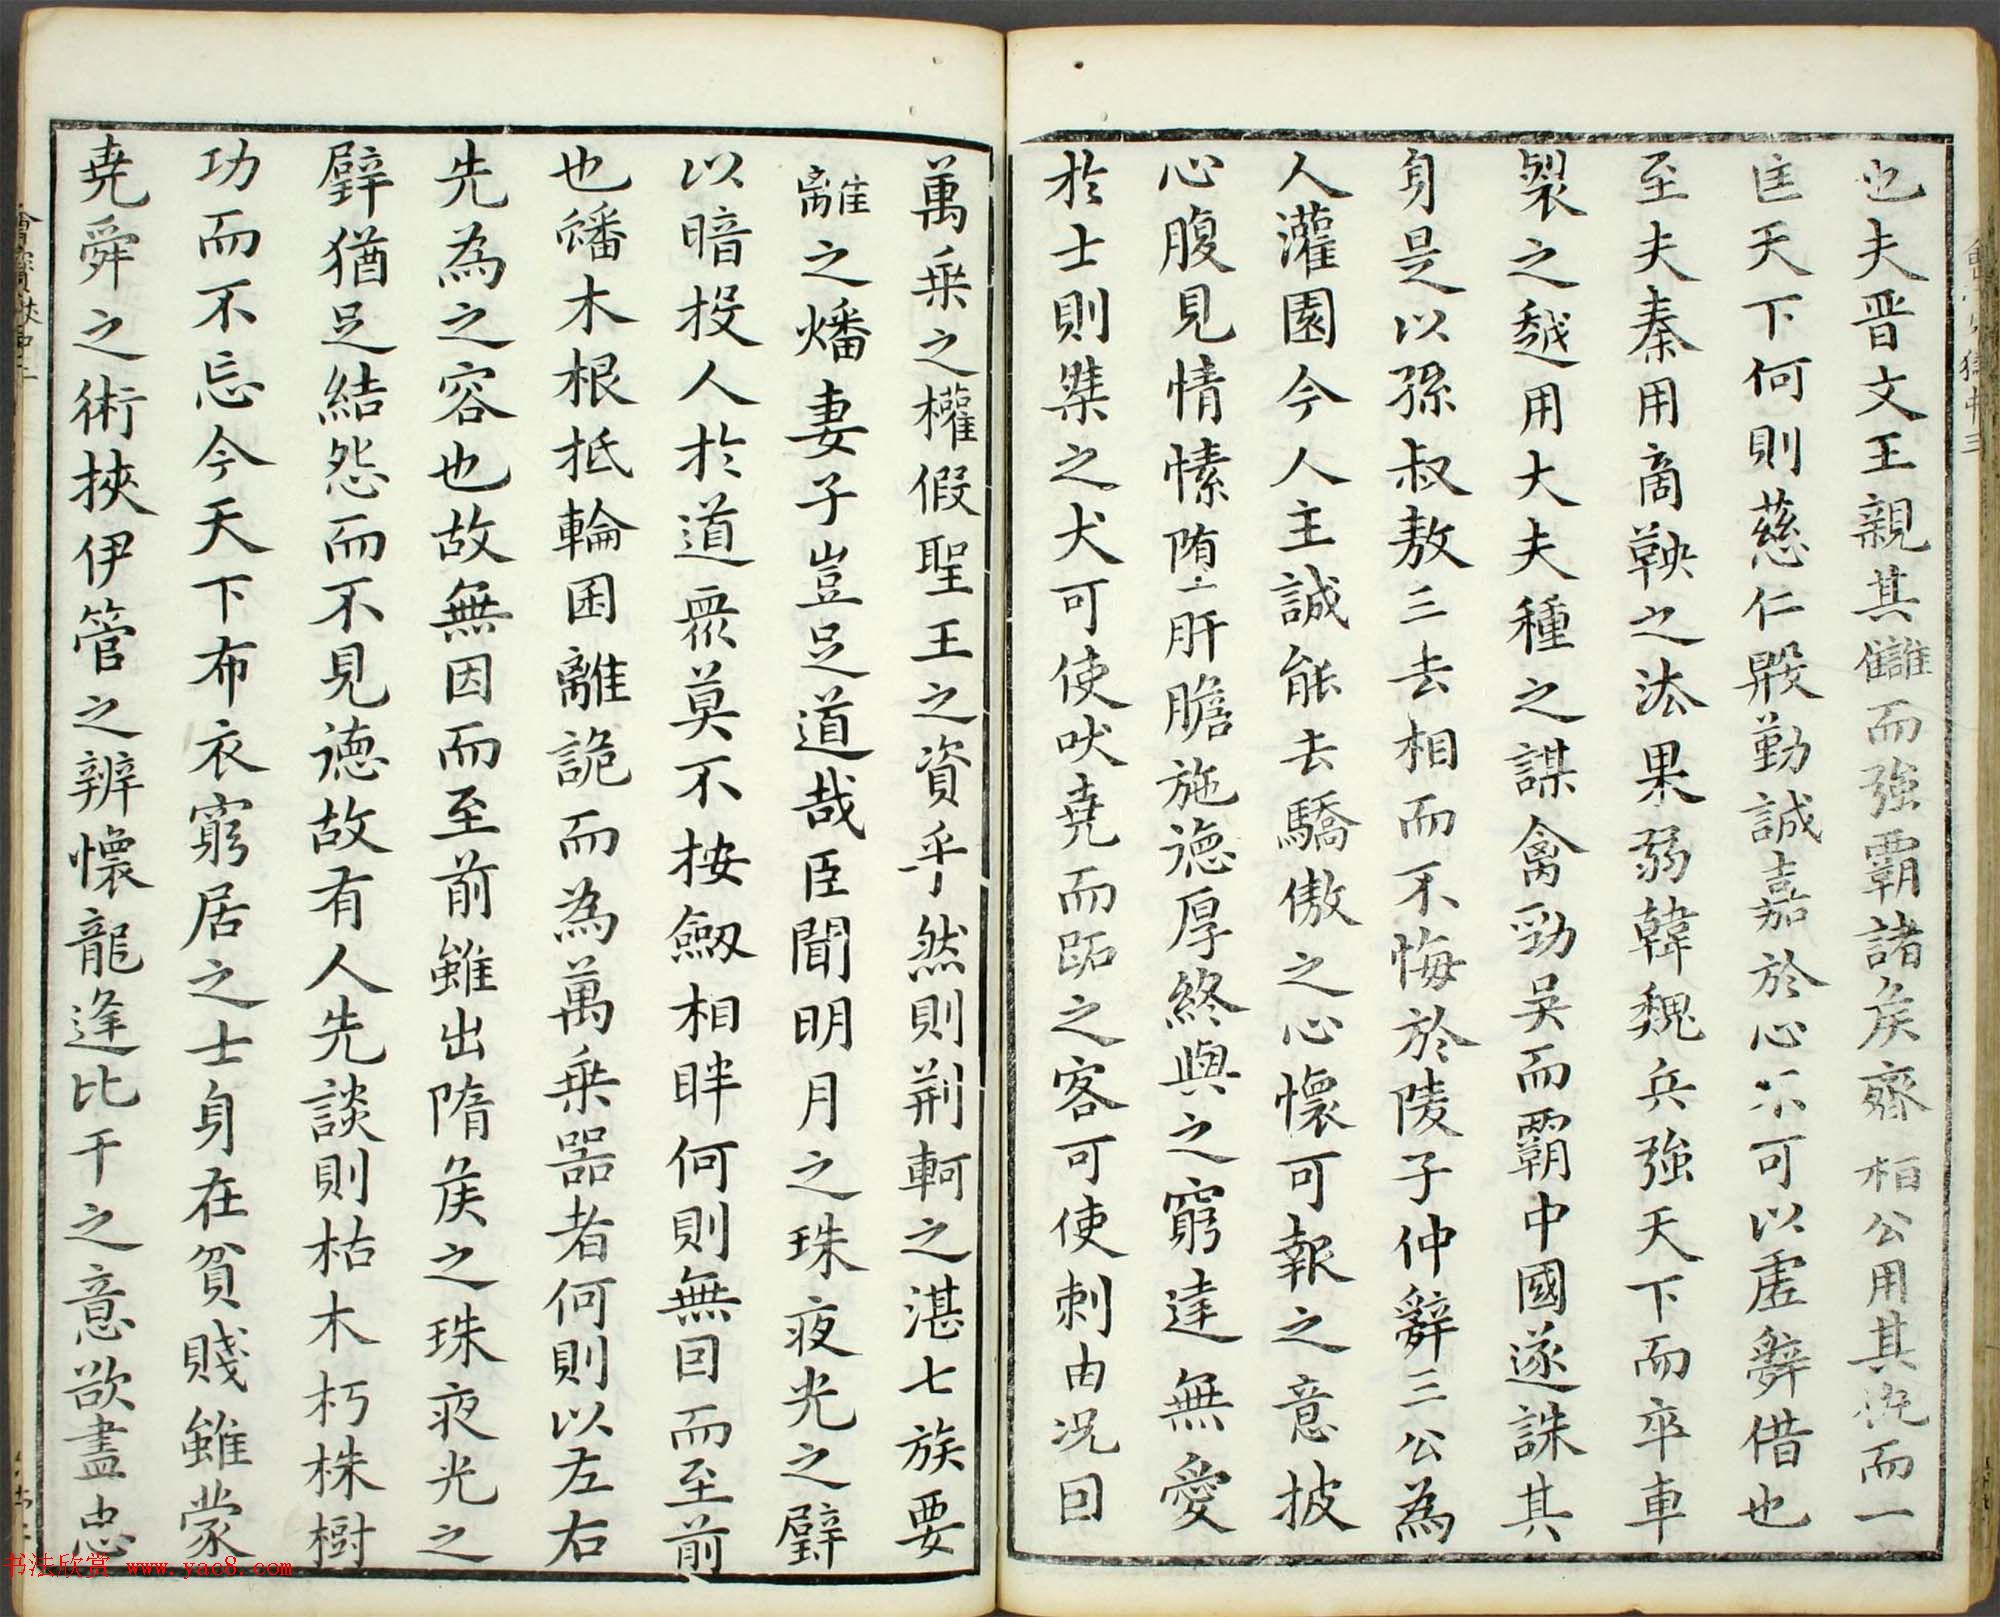 也夫晋文王親其讎而強霸諸矦齊栢公用其仇而一
匡天下何則慈仁殷勤誠嘉於心不可以虛辭借也
至夫秦用商鞅之法果弱韓魏兵強天下而卒車
裂之越用大夫種之謀禽勁吳而霸中國遂誅其
身是以孫叔敖三去相而不悔於陵子仲辭三公為
人灌園今人主誠能去驕傲之心懷可報之意披
心腹見情愫堕肝膽施德厚終與之窮達無愛
於士則桀之犬可使吠堯而跖之客可使刺由况因
萬乗之權假聖王之資乎然則荊軻之湛七族要
離之燔妻子豈足道哉臣聞明月之珠夜光之璧
以暗投人於道衆莫不按劒相眄何則無因而至前
也蟠木根柢輪囷離詭而為萬乗器者何則以左右
先為之容也故無因而至前雖出隋矦之珠夜光之
璧猶足結怨而不見德故有人先談則枯木朽株樹
功而不忘今天下布衣窮居之士身在貧賤雖蒙
堯舜之術挾伊管之辨懷龍逢比干之意欲盡忠
书法欣赏 www.yac8.com